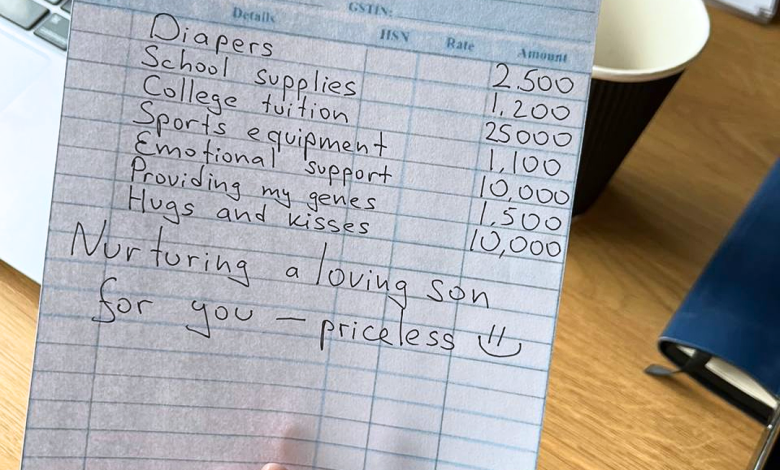 GSTIN:
Details HSN Rate Amount
Diapers 2,500
School supplies 1,200
College tuition 25000
Sports equipment 1,100
Emotional support 10,000
Providing my genes 1,500
Hugs and kisses 10,000
Nurturing a loving son
for you – priceless